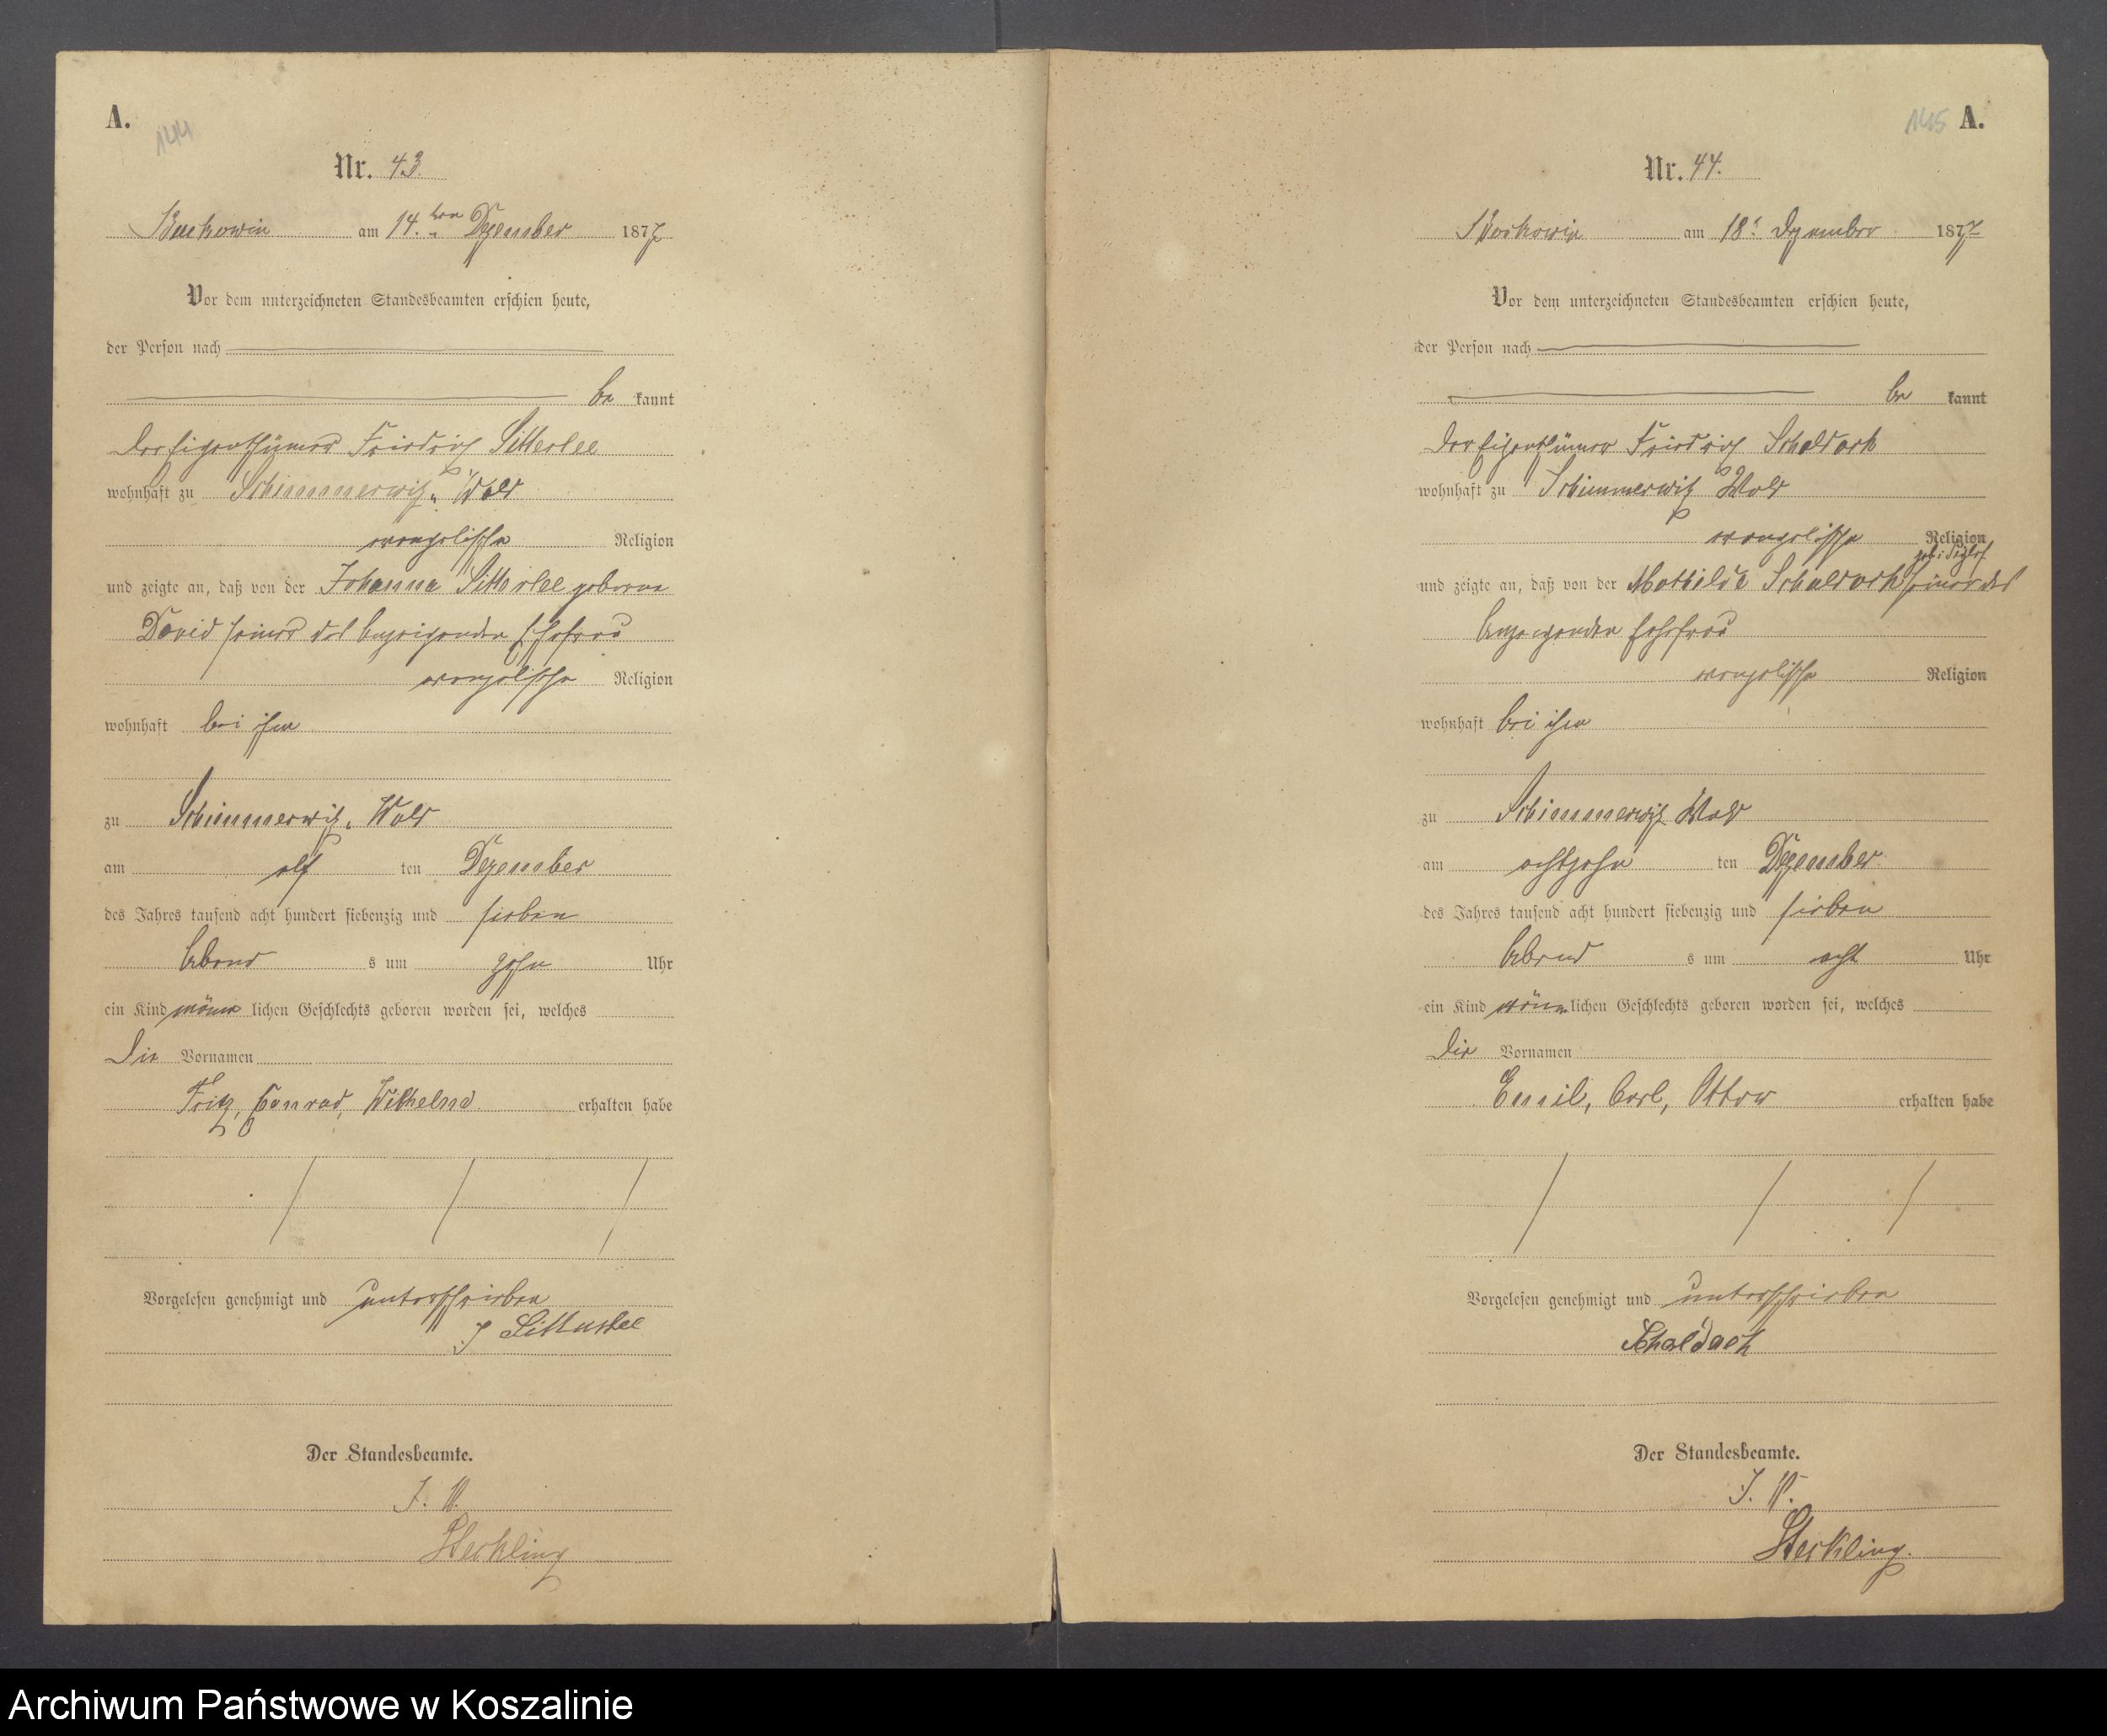 A.
144
Nr. 43.
Buckowin am 14. ten Dezember 1877
Vor dem unterzeichneten Standesbeamten erschien heute,
der Person nach
be kannt
der Eigenthümer Friedrich Sitterlee
wohnhaft zu Schimmerwitz Wald
evangelischer Religion
und zeigte an, daß von der Johanna Sitterlee geborne
David seiner des Anzeigenden Ehefrau
evangelischer Religion
wohnhaft bei ihm
zu Schimmerwitz Wald
am elf ten Dezember
des Jahres tausend acht hundert siebenzig und sieben
Abend s um zehn Uhr
ein Kind männ lichen Geschlechts geboren worden sei, welches
die Vornamen
Fritz, Conrad, Wilhelm erhalten habe
Vorgelesen genehmigt und unterschrieben
Der Standesbeamte.
J. V.
Sterkling
145 A.
Nr. 44.
am 18. Dezember 1877
Vor dem unterzeichneten Standesbeamten erschien heute,
der Person nach
be kannt
der Eigenthümer Friedrich Schaldach
wohnhaft zu Schimmerwitz Wald
evangelischer Religion
und zeigte an, daß von der Mathilde Schaldach seiner des
Anzeigenden Ehefrau
evangelischer Religion
wohnhaft bei ihm
zu Schimmerwitz Wald
am achtzehn ten Dezember
des Jahres tausend acht hundert siebenzig und sieben
Abend s um acht Uhr
ein Kind männ lichen Geschlechts geboren worden sei, welches
die Vornamen
Emil, Carl, Ottow erhalten habe
Vorgelesen genehmigt und unterschrieben
Schaldach
Der Standesbeamte.
J. V.
Sterkling.
Archiwum Państwowe w Koszalinie